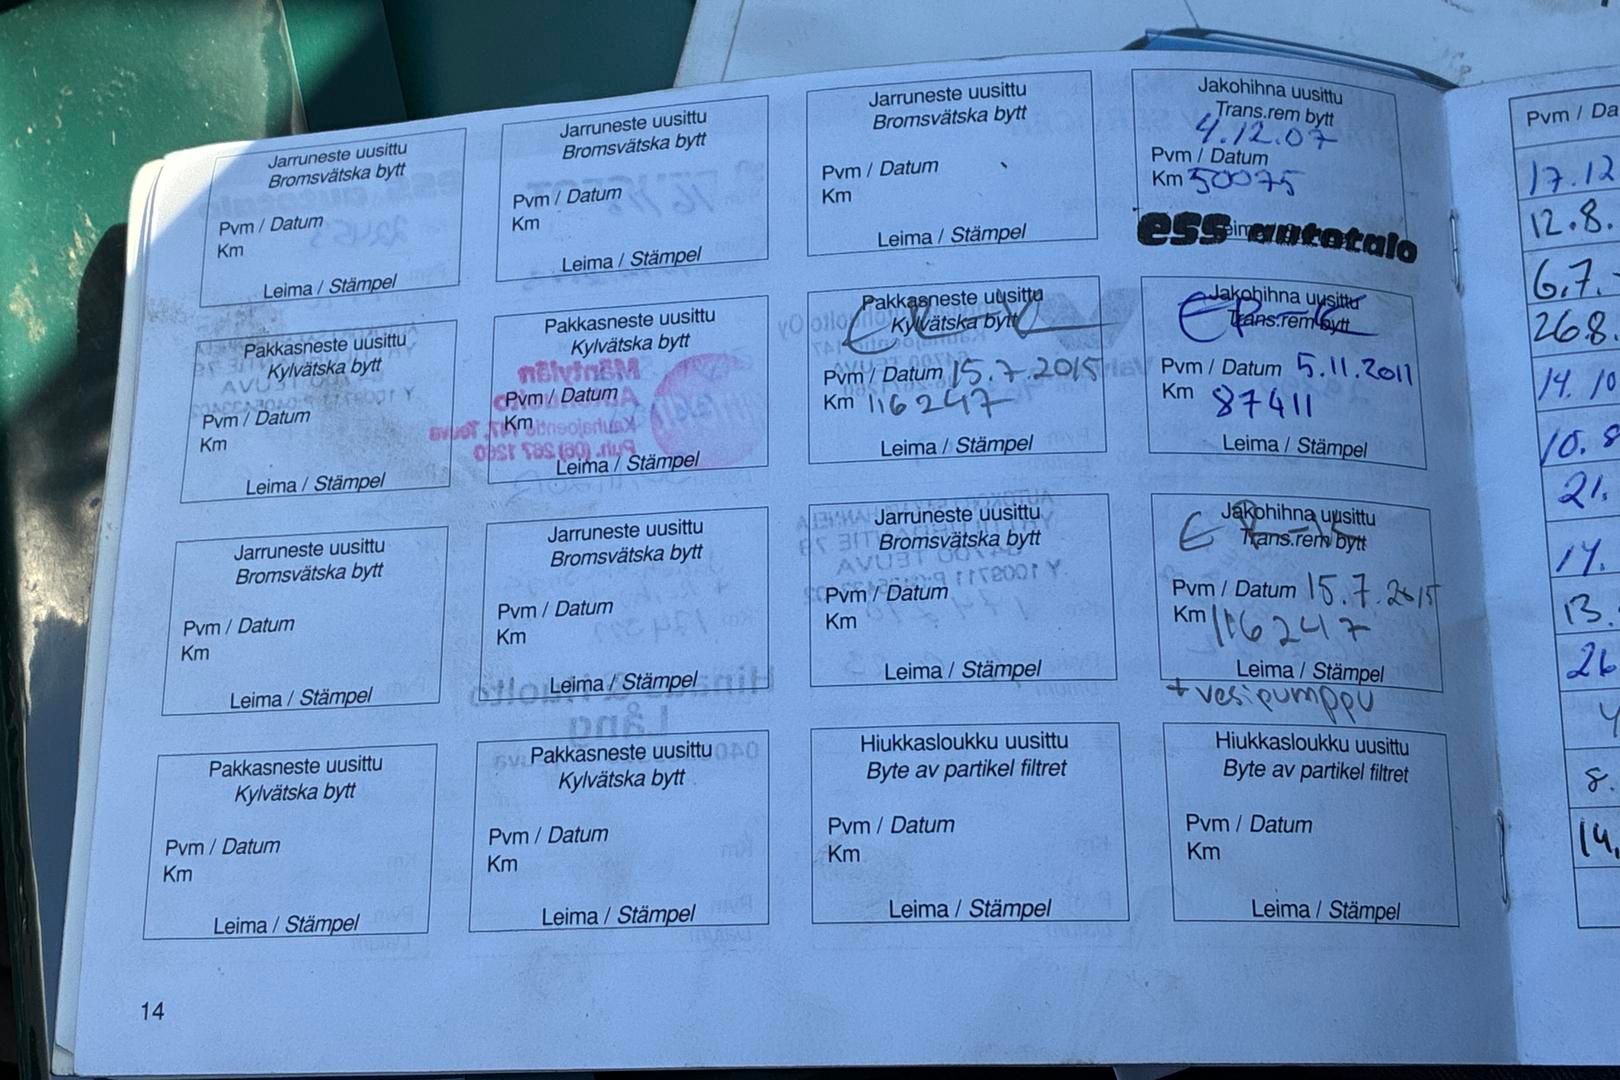 Jarruneste uusittu
Bromsvätska bytt
Pvm / Datum
Km
Leima / Stämpel
Jarruneste uusittu
Bromsvätska bytt
Pvm / Datum
Km
Leima / Stämpel
Jarruneste uusittu
Bromsvätska bytt
Pvm / Datum
Km
Leima / Stämpel
Jakohihna uusittu
Trans.rem bytt
4.12.07
Pvm / Datum
Km 50075
ess autotalo
Pakkasneste uusittu
Kylvätska bytt
Pvm / Datum
Km
Leima / Stämpel
Pakkasneste uusittu
Kylvätska bytt
Pvm / Datum
Km
Leima / Stämpel
Pakkasneste uusittu
Kylvätska bytt
Pvm / Datum 15.7.2015
Km 116247
Leima / Stämpel
Jakohihna uusittu
Trans.rem bytt
Pvm / Datum 5.11.2011
Km 87411
Leima / Stämpel
Jarruneste uusittu
Bromsvätska bytt
Pvm / Datum
Km
Leima / Stämpel
Jarruneste uusittu
Bromsvätska bytt
Pvm / Datum
Km
Leima / Stämpel
Jarruneste uusittu
Bromsvätska bytt
Pvm / Datum
Km
Leima / Stämpel
Jakohihna uusittu
Trans.rem bytt
Pvm / Datum 15.7.2015
Km 116247
Leima / Stämpel
+ vesipumppu
Pakkasneste uusittu
Kylvätska bytt
Pvm / Datum
Km
Leima / Stämpel
Pakkasneste uusittu
Kylvätska bytt
Pvm / Datum
Km
Leima / Stämpel
Hiukkasloukku uusittu
Byte av partikel filtret
Pvm / Datum
Km
Leima / Stämpel
Hiukkasloukku uusittu
Byte av partikel filtret
Pvm / Datum
Km
Leima / Stämpel
14
Pvm / Da
17.12
12.8.
6.7.
26.8.
14.10
10.8
21.
14.
13.
26
8.
14.